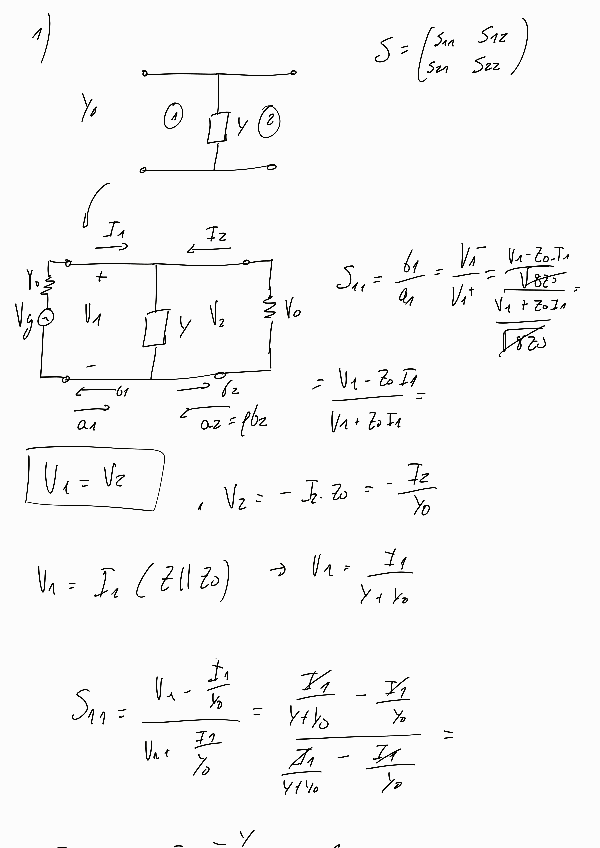 1)
S = (S11 S12
S21 S22)
Y0 ① Y ②
I1 I2
Y0 + Y0
Vg V1 Y V2
-
b1 b2
a1 a2 = ρb2
S11 = b1/a1 = V1⁻/V1⁺ = ((V1 - Z0·I1)/√8Z0)/((V1 + Z0I1)/√8Z0) =
= (V1 - Z0 I1)/(V1 + Z0 I1) =
V1 = V2 , V2 = - I2·Z0 = - I2/Y0
V1 = I1 (Z || Z0) → V1 = I1/(Y + Y0)
S11 = (V1 - I1/Y0)/(V1 + I1/Y0) = (I1/(Y+Y0) - I1/Y0)/(I1/(Y+Y0) - I1/Y0) =
-Y